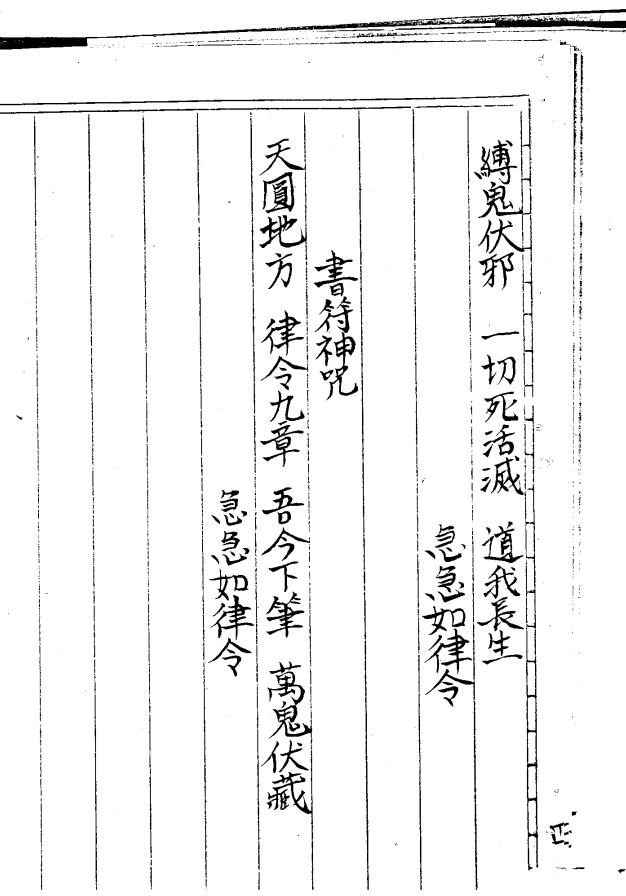 縛鬼伏邪 一切死活滅 道我長生
急急如律令
書符神咒
天圓地方 律令九章 吾今下筆 萬鬼伏藏
急急如律令